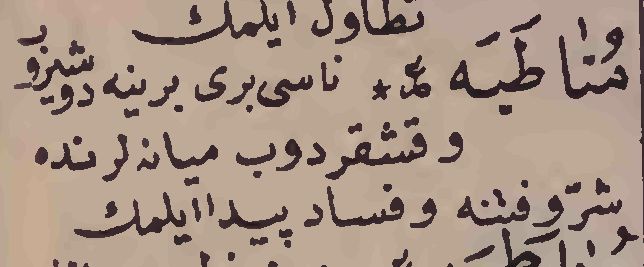 تطاول ایلمك
مُنَاطَبَه * ناسی بری برینه دوشیروب
وقشقردوب میانه لرنده
شرّ وفتنه وفساد پیدا ایلمك